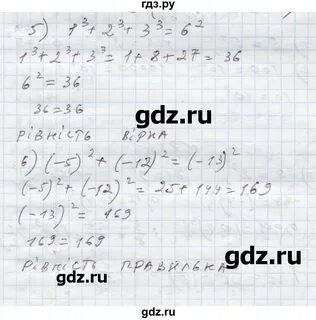 5) 1³ + 2³ + 3³ = 6²
1³ + 2³ + 3³ = 1 + 8 + 27 = 36
6² = 36
36 = 36
РІВНІСТЬ ВІРНА
6) (-5)² + (-12)² = (-13)²
(-5)² + (-12)² = 25 + 144 = 169
(-13)² = 169
169 = 169
РІВНІСТЬ ПРАВИЛЬНА
gdz.ru
gdz.ru
gdz.ru
gdz.ru